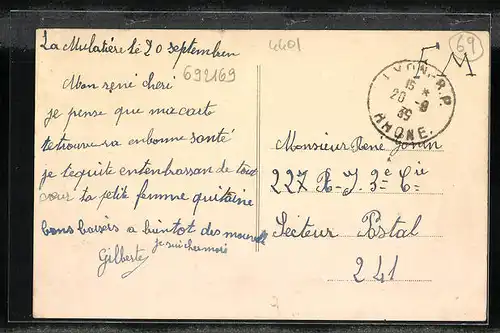 La Mulatière le 20 septembre
4401
69
FM
692169
LYON-R.P.
15 *
20 -9
39
RHONE.
Mon rené cheri
je pense que ma carte
te trouvera en bonne santé
je te quite en tenbrassan de tout
ta petite femme qui taime
bons baisers a bientot des mouvelle
je suis cher moi
Gilberte
Monsieur René
227 R-I. 3e Cie
Secteur Postal
241